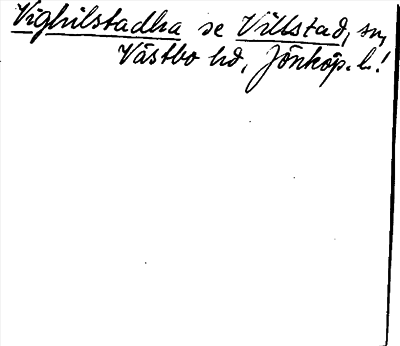 Vighilstadha se Villstad, sn,
Västbo hd, Jönköp. l.!